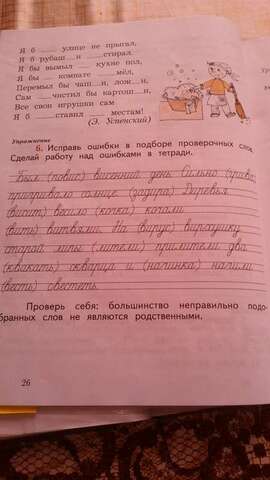 Я б ___ улице не прыгал,
Я б рубаш__ и ___стирал.
Я бы вымыл ___ кухне пол,
Я бы ___ комнате ___мёл,
Перемыл бы чаш__и, лож__и,
Сам ___чистил бы картош__и,
Все свои игрушки сам
Я б ___ставил ___ местам!
(Э. Успенский)
Упражнение
6. Исправь ошибки в подборе проверочных слов.
Сделай работу над ошибками в тетради.
Был (повис) висенний день. Сильно
пригривало солнце. (задира) Деревья
(висит) весило (кочка) кочали
(вить) витвями. На (вирус) вирхушку
старой липы (лители) прилители два
(квикать) скварца и (начинка) начили
(весть) свестеть.
Проверь себя: большинство неправильно подо-
бранных слов не являются родственными.
26